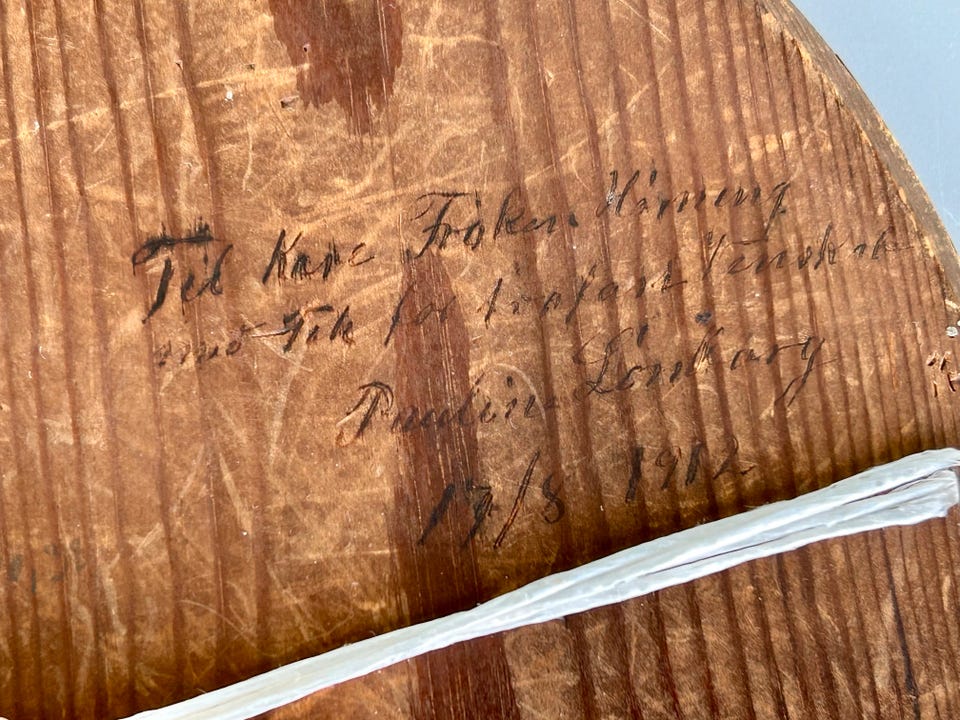 Til Kære Frøken Hirming
med Tak for trofast Venskab
Pauline Lönborg
17/8 1912